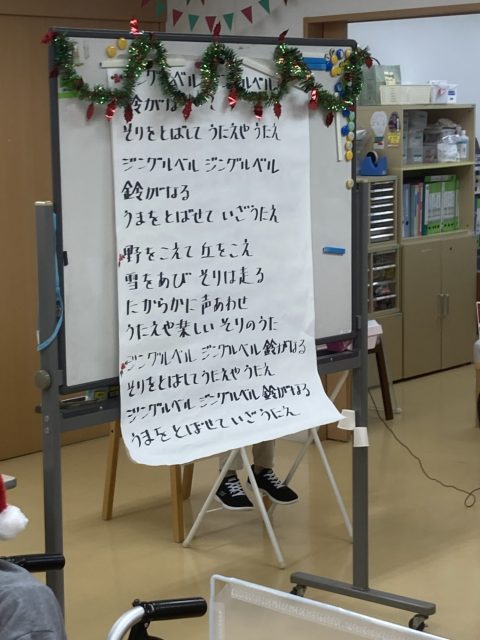 ジングルベル ジングルベル
鈴がなる
そりをとばして うたえや うたえ
ジングルベル ジングルベル
鈴がなる
うまをとばせて いざうたえ
野をこえて 丘をこえ
雪をあび そりは走る
たからかに 声あわせ
うたえや楽しい そりのうた
ジングルベル ジングルベル 鈴がなる
そりをとばしてうたえやうたえ
ジングルベル ジングルベル 鈴がなる
うまをとばせていざうたえ